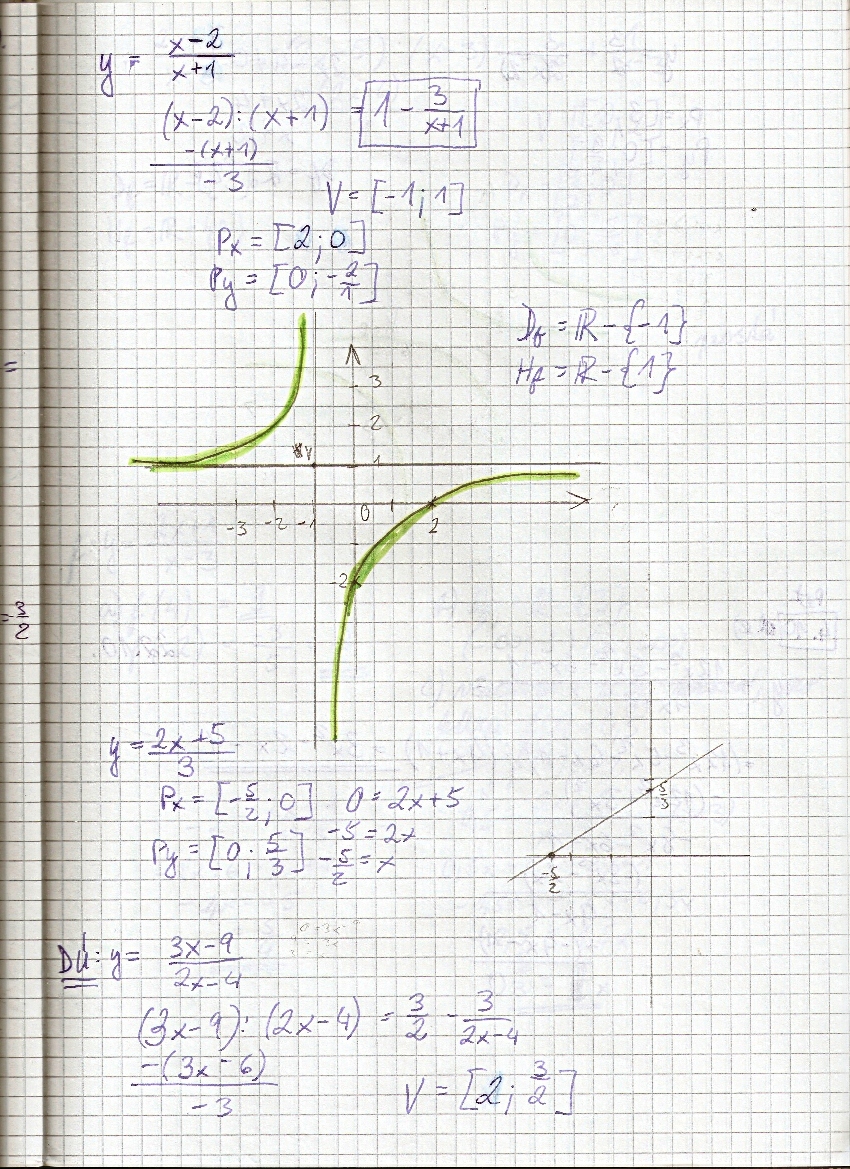 y = \frac{x-2}{x+1}
(x-2):(x+1) = 1 - \frac{3}{x+1}
-(x+1)
-3
V = [-1; 1]
Px = [2; 0]
Py = [0; -\frac{2}{1}]
Df = R - {-1}
Hf = R - {1}
=
3
2
1
V
-3 -2 -1 0 1 2
-2
= \frac{3}{2}
y = \frac{2x+5}{3}
Px = [-\frac{5}{2}; 0] 0 = 2x+5
Py = [0; \frac{5}{3}] -5 = 2x
-\frac{5}{2} = x
\frac{5}{3}
-\frac{5}{2}
DÚ: y = \frac{3x-9}{2x-4}
(3x-9):(2x-4) = \frac{3}{2} - \frac{3}{2x-4}
-(3x-6)
-3
V = [2; \frac{3}{2}]